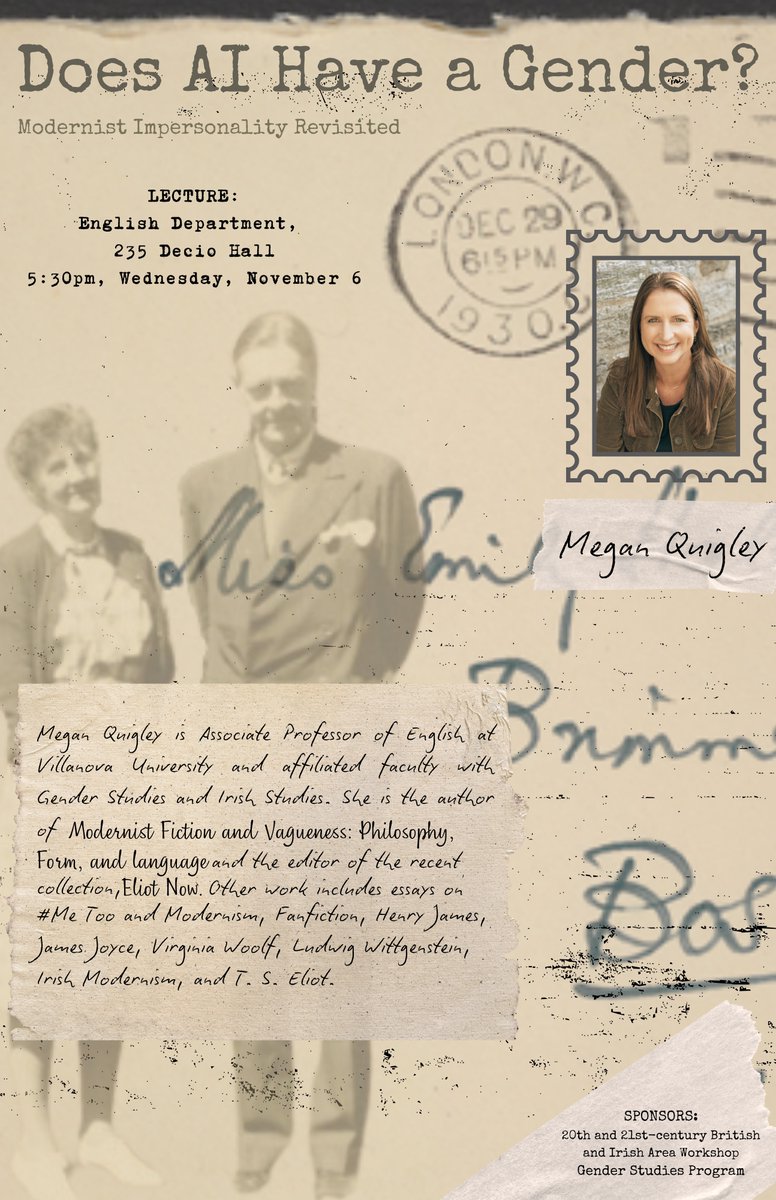 Does AI Have a Gender?
Modernist Impersonality Revisited
LECTURE:
English Department,
235 Decio Hall
5:30pm, Wednesday, November 6
LONDON. W.C.
DEC 29
615 PM
1930
Megan Quigley
Miss Emily
Megan Quigley is Associate Professor of English at
Villanova University and affiliated faculty with
Gender Studies and Irish Studies. She is the author
of Modernist Fiction and Vagueness: Philosophy,
Form, and language and the editor of the recent
collection, Eliot Now. Other work includes essays on
#Me Too and Modernism, Fanfiction, Henry James,
James Joyce, Virginia Woolf, Ludwig Wittgenstein,
Irish Modernism, and T. S. Eliot.
SPONSORS:
20th and 21st-century British
and Irish Area Workshop
Gender Studies Program